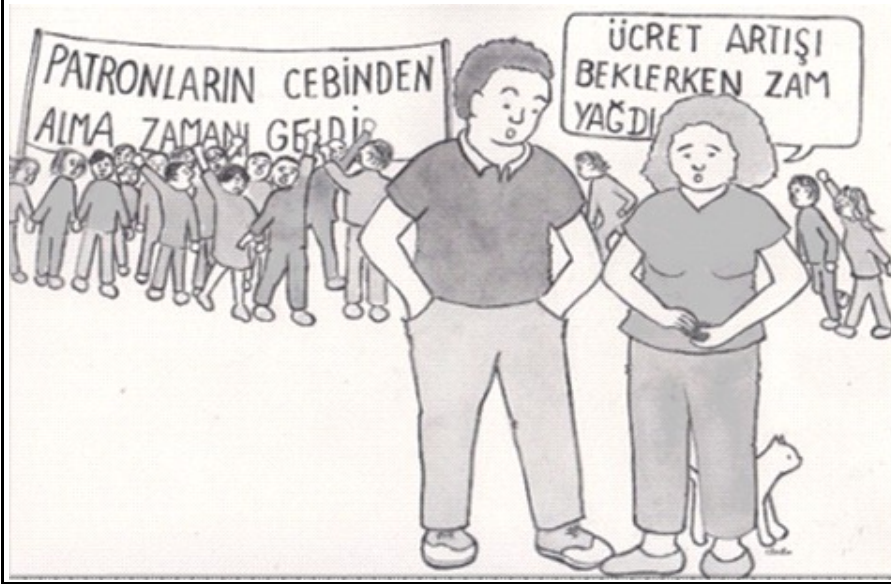 PATRONLARIN CEBİNDEN
ALMA ZAMANI GELDİR
ÜCRET ARTIŞI
BEKLERKEN ZAM
YAĞDI